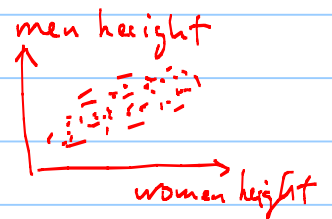 men height
women height